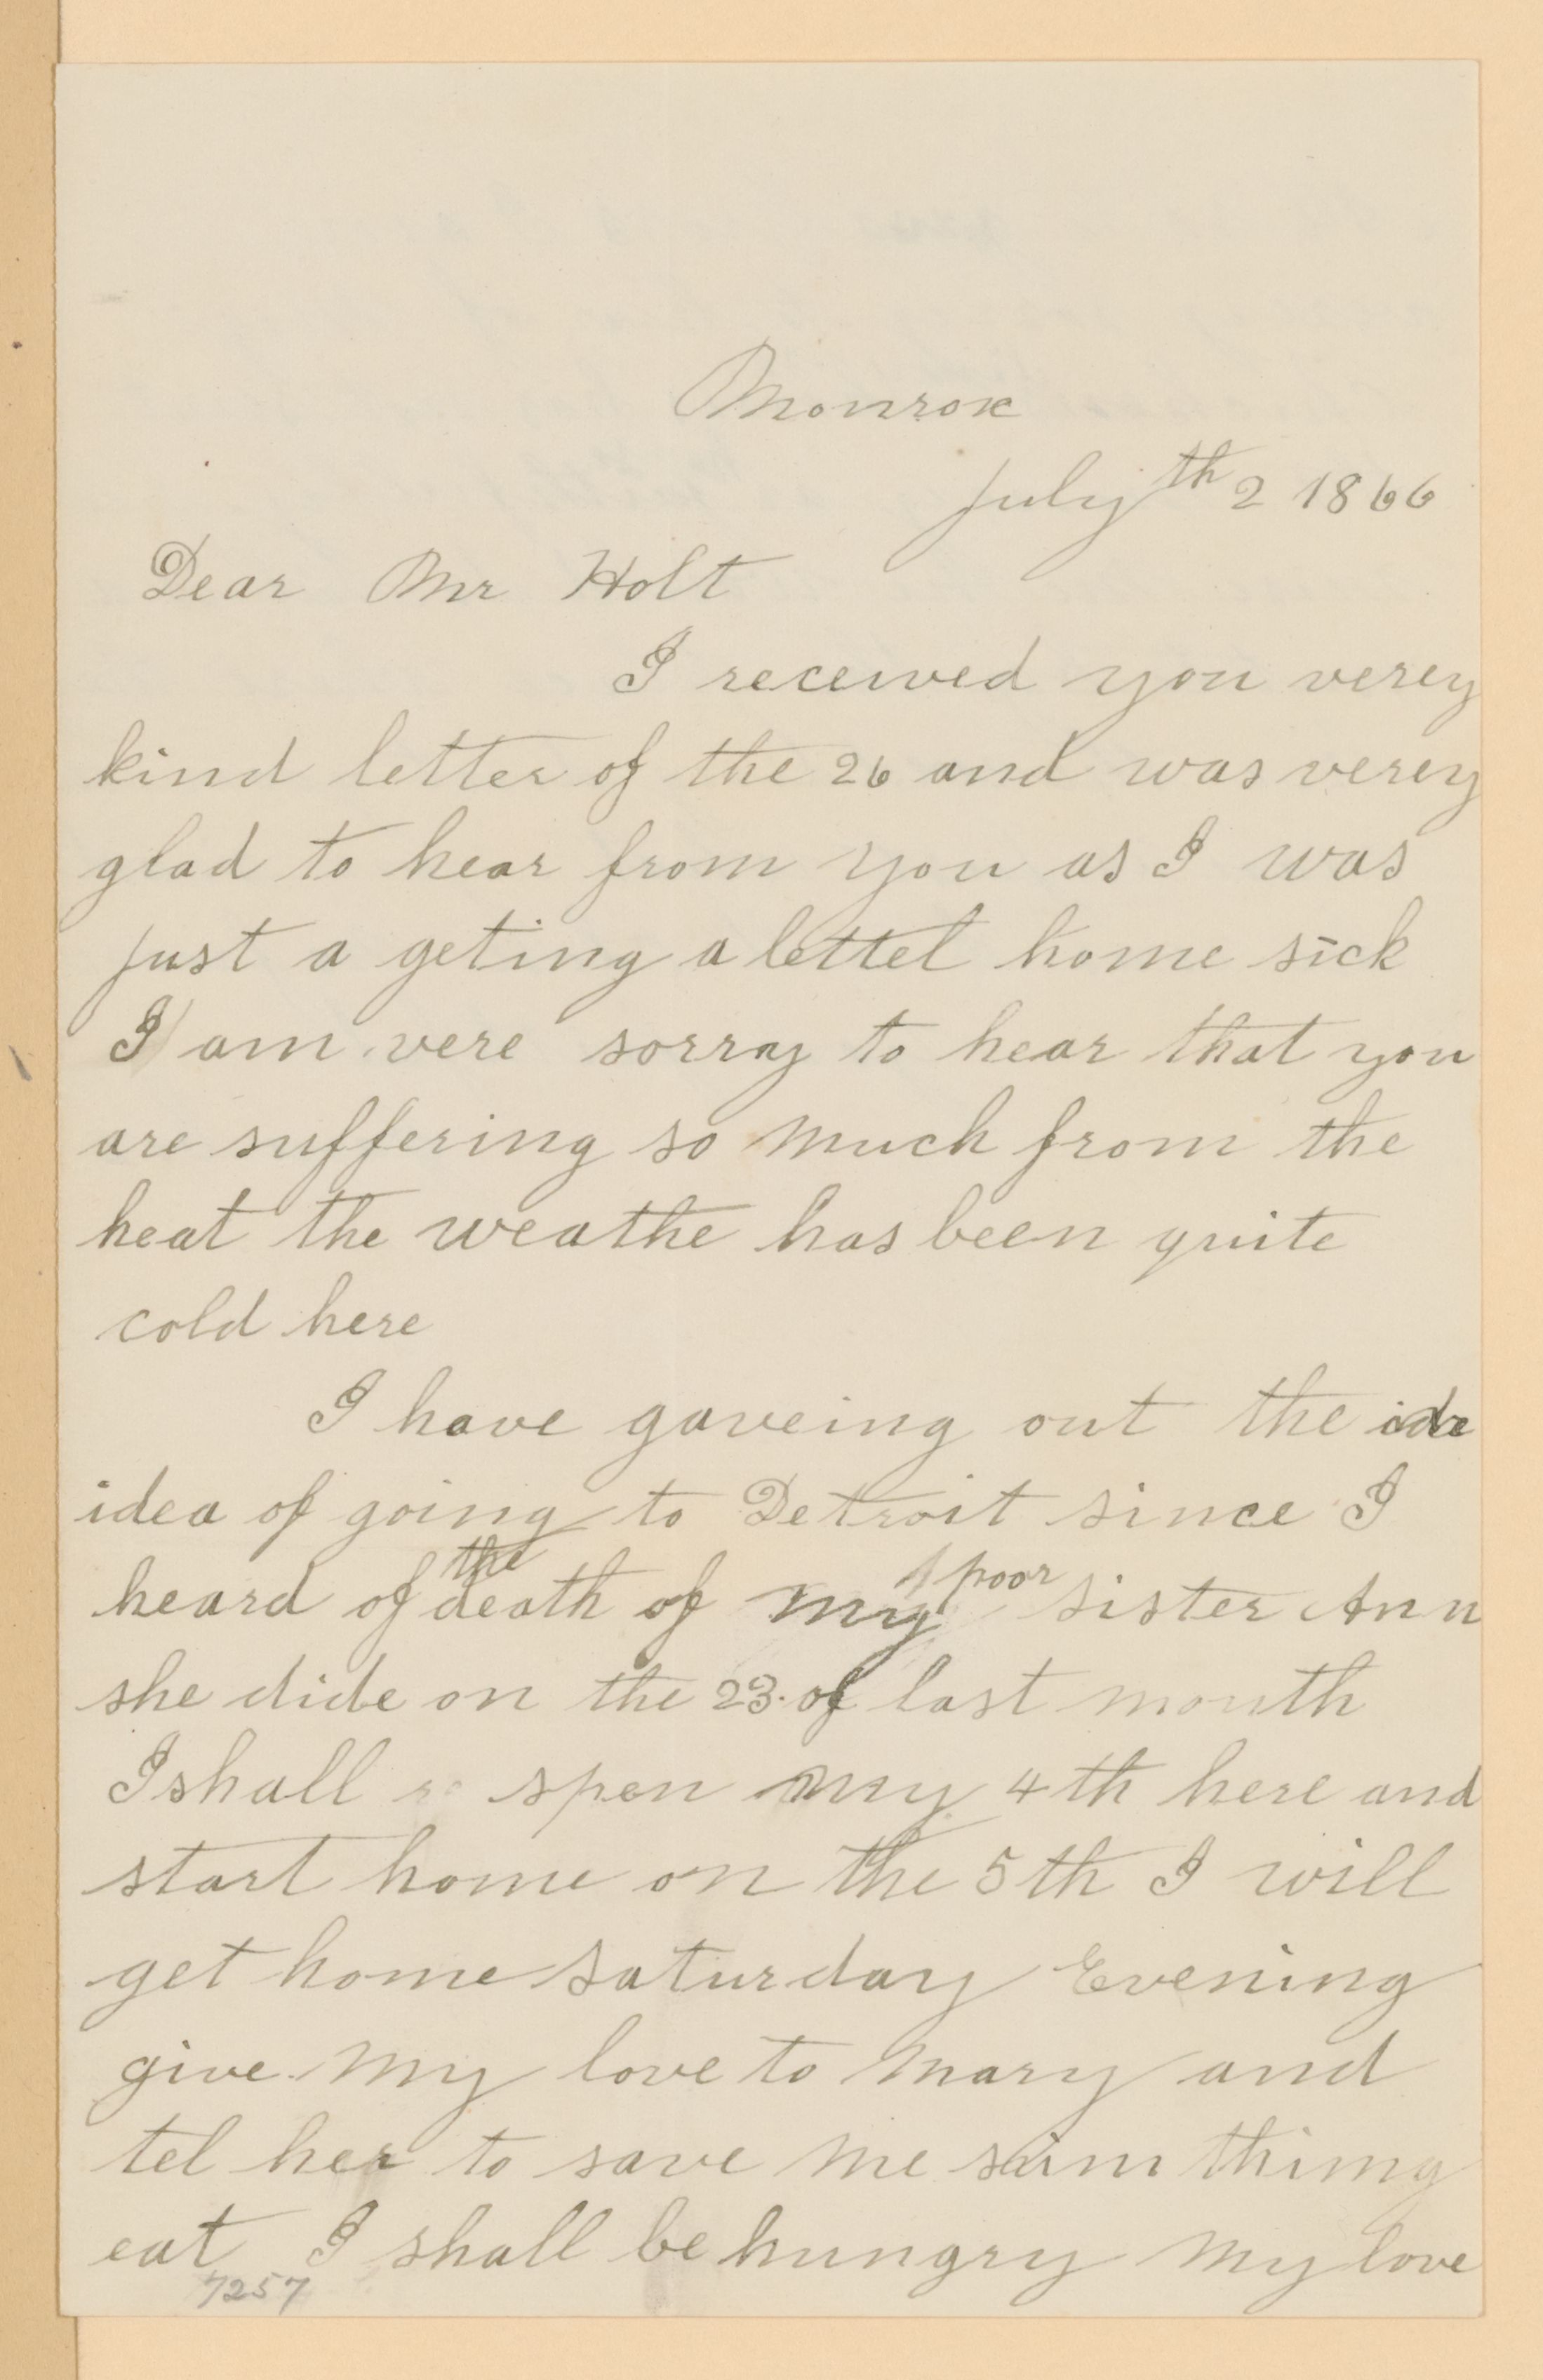 Monroe
July th 2 1866
Dear Mr Holt
I received you verey
kind letter of the 26 and was verey
glad to hear from you as I was
just a geting a lettel home sick
I am vere sorray to hear that you
are suffering so much from the
heat the weathe has been quite
cold here
I have gaveing out the ide
idea of going to Detroit since I
heard of the death of my poor sister Ann
she dide on the 23. of last month
I shall spen my 4th here and
start home on the 5th I will
get home saturday Evening
give my love to Mary and
tel her to save me sum thimg
eat I shall be hungry My love
7257